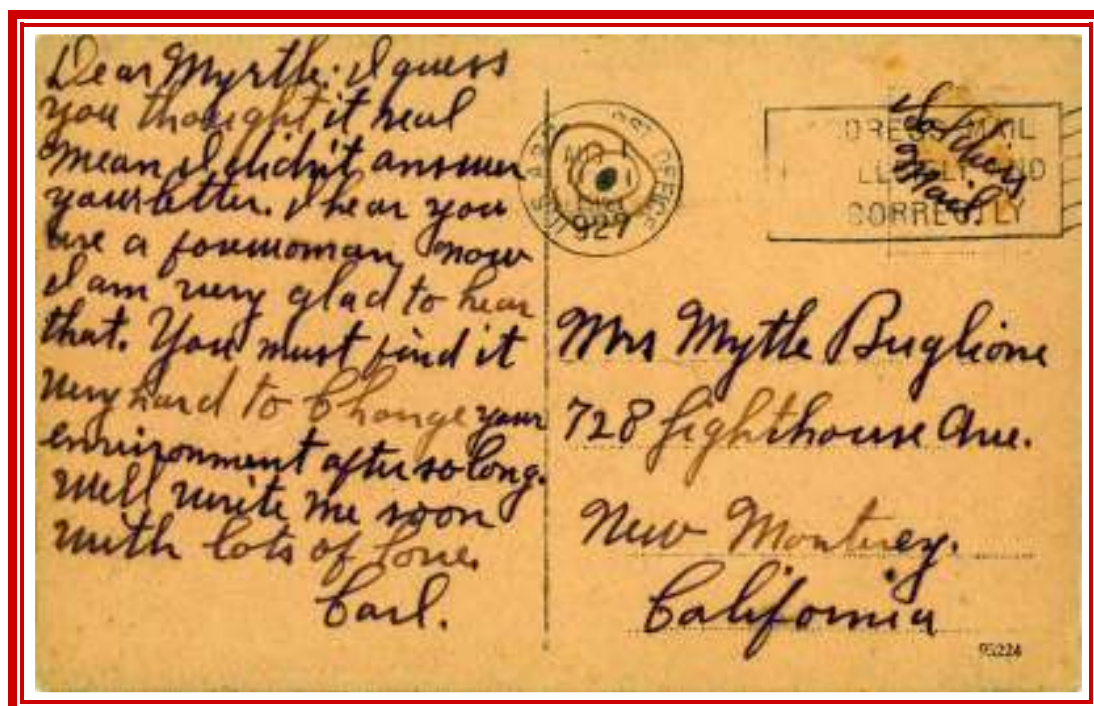 Dear Myrtle: I guess
you thought it real
mean I didn't answer
your letter. I hear you
are a forewoman now
I am very glad to hear
that. You must find it
very hard to change your
environment after so long.
Well write me soon
with lots of love.
Carl.
POST OFFICE
AUG 1
927
Soldiers
Mail
DRESS MAIL
CORRECTLY
Mrs Mytle Buglione
728 Lighthouse Ave.
New Monterey.
California
95224